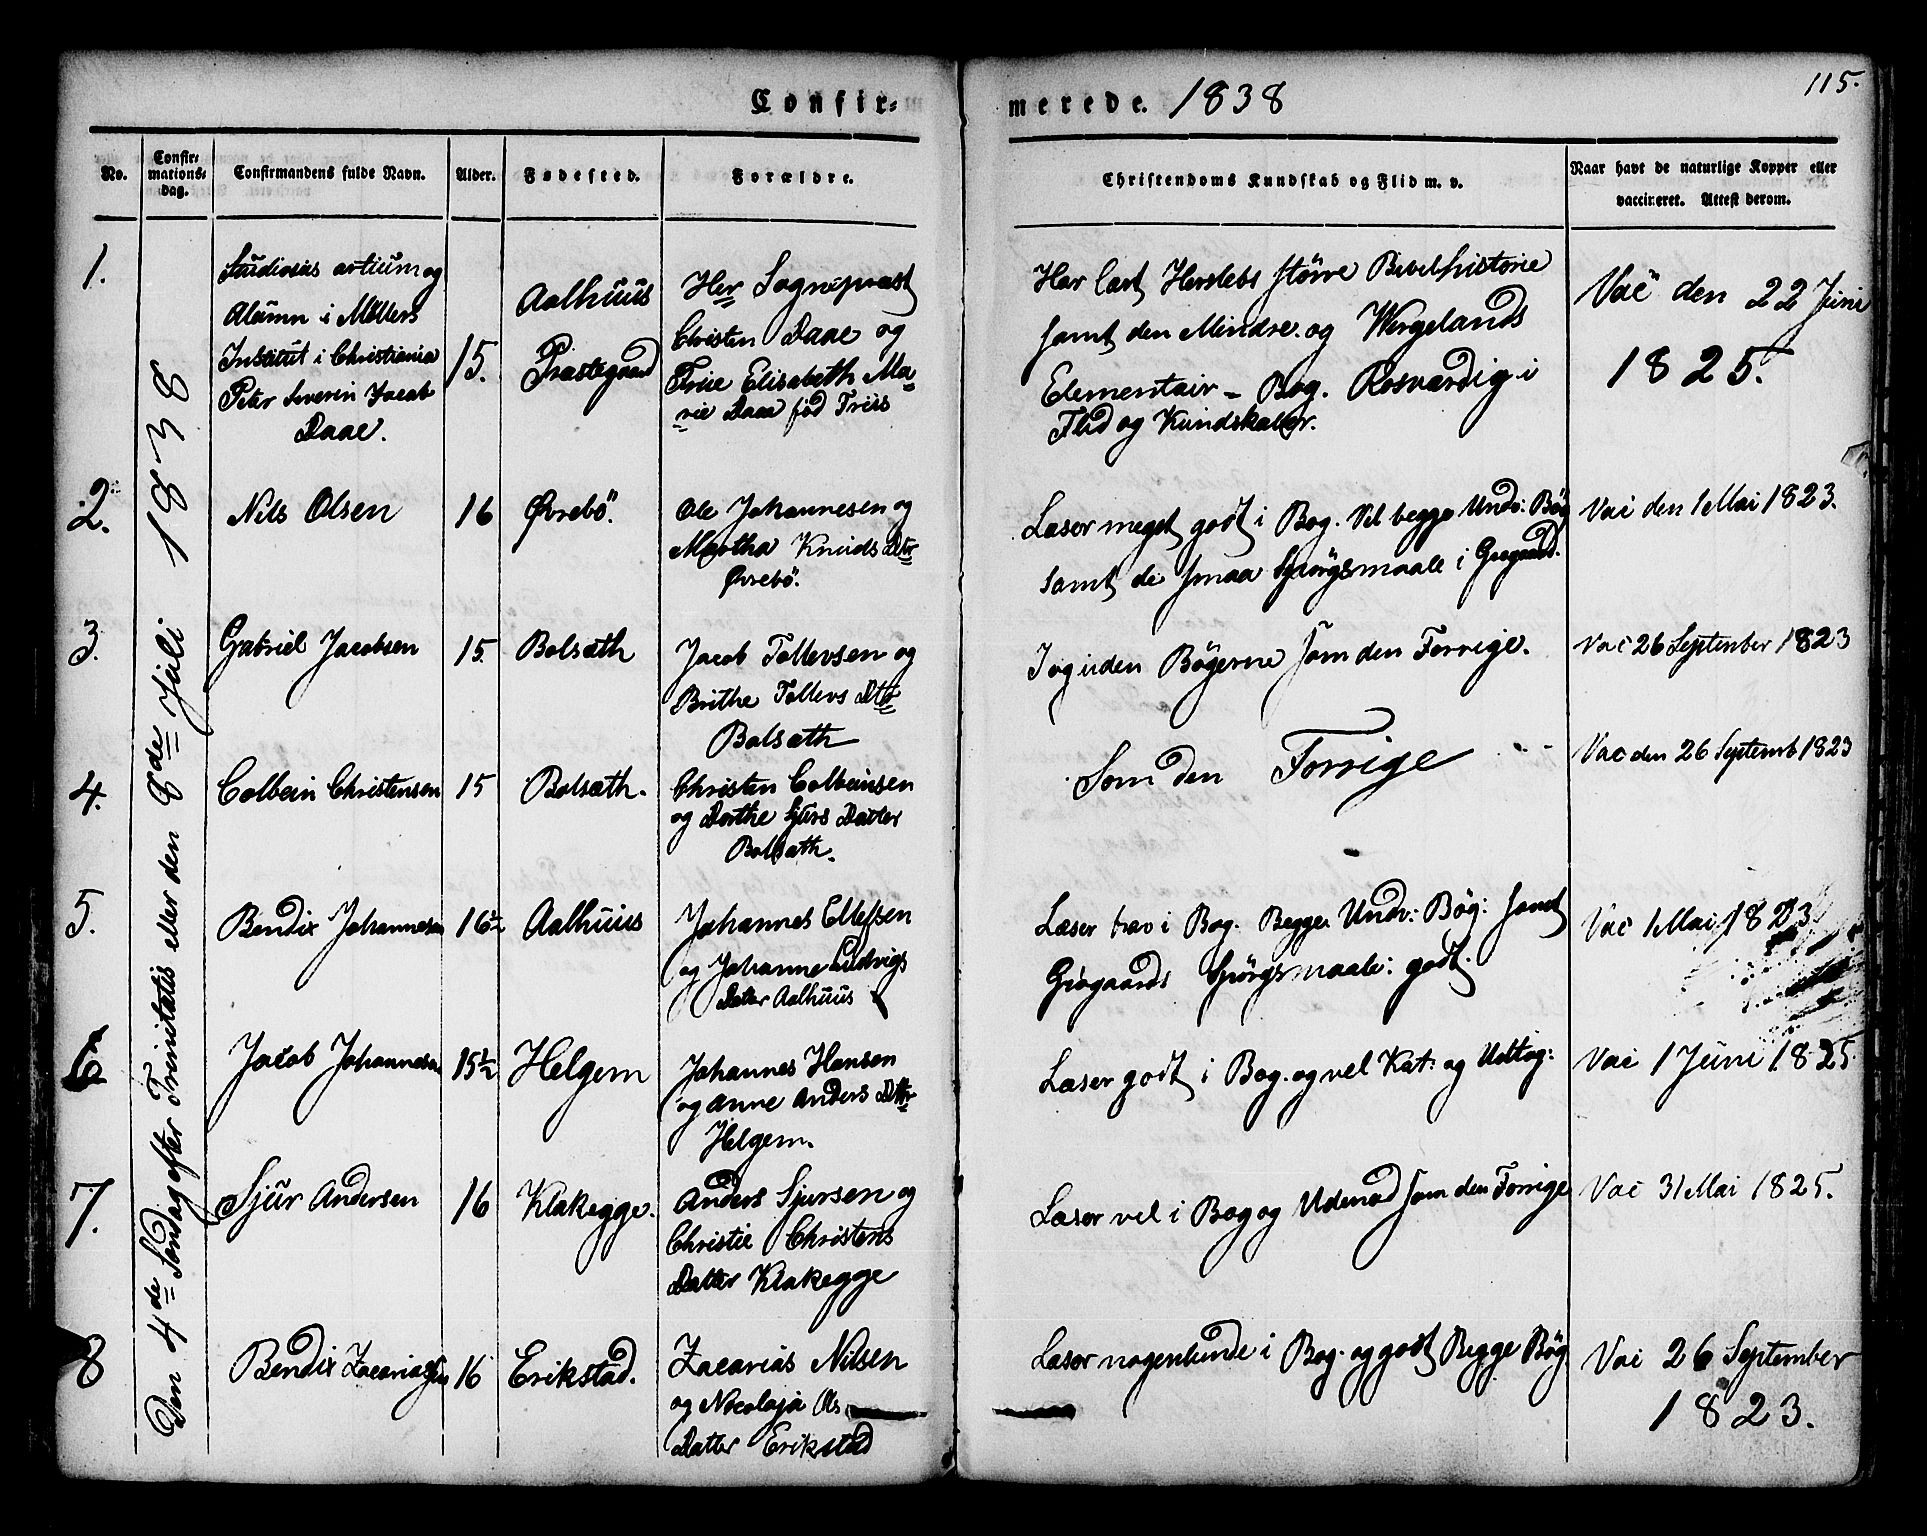 115.
Confir=
merede. 1838
No.
Confir=
mations=
dag.
Confirmandens fulde Navn.
Alder.
Fødested.
Forældre.
Christendoms Kundskab og Flid m. v.
Naar havt de naturlige Kopper eller
vaccineret. Attest derom.
Den 4de Søndag efter Trinitatis eller den 8de Juli 1838
1.
Studiosus artium og
Alumn i Møllers
Institut i Christiania
Peter Severin Jacob
Daae.
15.
Aalhuus
Præstegaard
Her Sognepræst
Christen Daae og
Frue Elisabeth Ma=
rie Daae fød Friis
Har læst Herslebs større Bibelhistorie
samt den Mindre. og Wergelands
Elementair - Bog. Rosværdig i
Flid og Kundskaber.
Vac den 22 Juni
1825.
2.
Nils Olsen
16
Øvrebö.
Ole Johannesen og
Martha Knuds Dttr
Øvrebö.
Læser meget godt i Bog. Vel begge Undv: Bøg
samt de smaa Spörgsmaale i Grogaard.
Vac den 1 Mai 1823.
3.
Gabriel Jacobsen
15.
Bolsæth
Jacob Tollevsen og
Brithe Tollevs Dttr
Bolsæth
I og uden Bögerne som den Forrige.
Vac 26 September 1823
4.
Colbein Christensen
15
Bolsæth.
Christen Colbeinsen
og Dorthe Sjurs Datter
Bolsæth.
Som den Forrige
Vac den 26 Septemb 1823
5.
Bendix Johannesen
16½
Aalhuus
Johannes Ellefsen
og Johanne Ludvigs
Datter Aalhuus
Læser brav i Bog. Begge Undv: Bøg: samt
Grøgaards Spörgsmaale: godt.
Vac 1 Mai 1823
6
Jacob Johannesen
15½
Helgem
Johannes Hansen
og Anne Anders Dttr
Helgem.
Læser godt i Bog. og vel Kat: og Udtog:
Vac 1 Juni 1825.
7.
Sjur Andersen
16
Klakegge.
Anders Sjursen og
Christie Christens
Datter Klakegge
Læser vel i Bog og Udenad som den Forrige
Vac 31 Mai 1825.
8
Bendix Zacariasen
16
Erikstad.
Zacarias Nilsen
og Nicolaja Ols
Datter Erikstad
Læser nogenlunde i Bog. og godt Begge Bøg
Vac 26 September
1823.